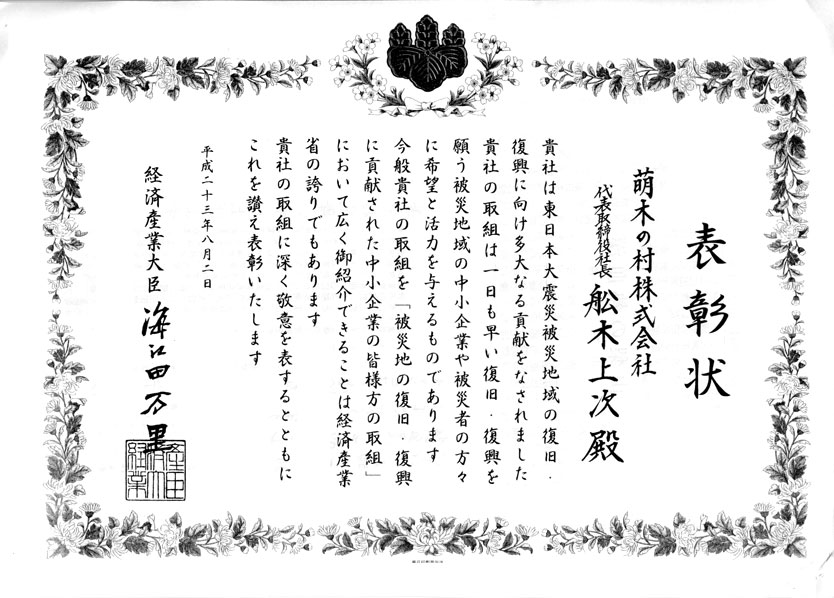 表彰状
萌木の村株式会社
代表取締役社長 舩木上次殿
貴社は東日本大震災被災地域の復旧・
復興に向け多大なる貢献をなされました
貴社の取組は一日も早い復旧・復興を
願う被災地域の中小企業や被災者の方々
に希望と活力を与えるものであります
今般貴社の取組を「被災地の復旧・復興
に貢献された中小企業の皆様方の取組」
において広く御紹介できることは経済産業
省の誇りでもあります
貴社の取組に深く敬意を表するとともに
これを讃え表彰いたします
平成二十三年八月二日
経済産業大臣 海江田万里